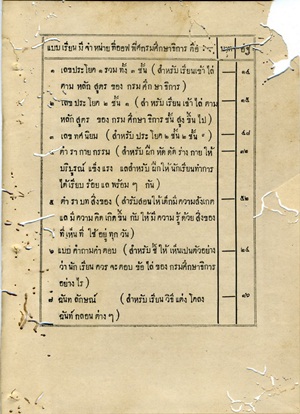 แบบเรียน มี จำหน่าย ที่ออฟ ฟิศกรมศึกษาธิการ คือ
๑ เลขประโยค ๑ รวม ทั้ง ๓ ชั้น ( สำหรับ เรียน เข้า ใล่ ๑๔
ตาม หลัก สูตร ของ กรม ศึก ษา ธิการ )
๒ เลข ประโยค ๒ ชั้น ๑ ( สำ หรับ เรียน เข้า ใล่ ตาม ๑๕
หลัก สูตร ของ กรม ศึกษา ธิการ ชั้น สูง ขึ้น ไป )
๓ เลข ทศ นิยม ( สำหรับ ประ โยค ๒ ชั้น ๒ ชั้น ) ๔๘
๔ ตำ รา กาย กรรม ( สำหรับ ฝึก หัด ดัด ร่าง กาย ให้ ๓๒
บริบูรณ์ แข็ง แรง แลสำหรับ ฝึก ให้ นักเรียนทำการ
ได้ เรียบ ร้อย แล พร้อม ๆ กัน )
๕ ตำ รา บท สิ่งของ ( สำรับสอน ให้ เด็ก มี ความ สังเกต ๕๒
แล มี ความ คิด เกิด ขึ้น กับ ให้ มี ความ รู้ ด้วย สิ่งของ
ที่ เห็น ที่ ใช้ อยู่ ทุก วัน )
๖ แบบ คำถาม คำ ตอบ ( สำหรับ ชี้ ให้ เห็นเป็นตัวอย่าง ๒๔
ว่า นัก เรียน ควร จะ ตอบ ข้อ ใล่ ของ กรมศึกษาธิการ
อย่าง ไร )
๗ ฉันท ลักษณ์ ( สำหรับ เรียน วิธี แต่ง โคลง ๑๐
ฉันท์ กลอน ต่าง ๆ )